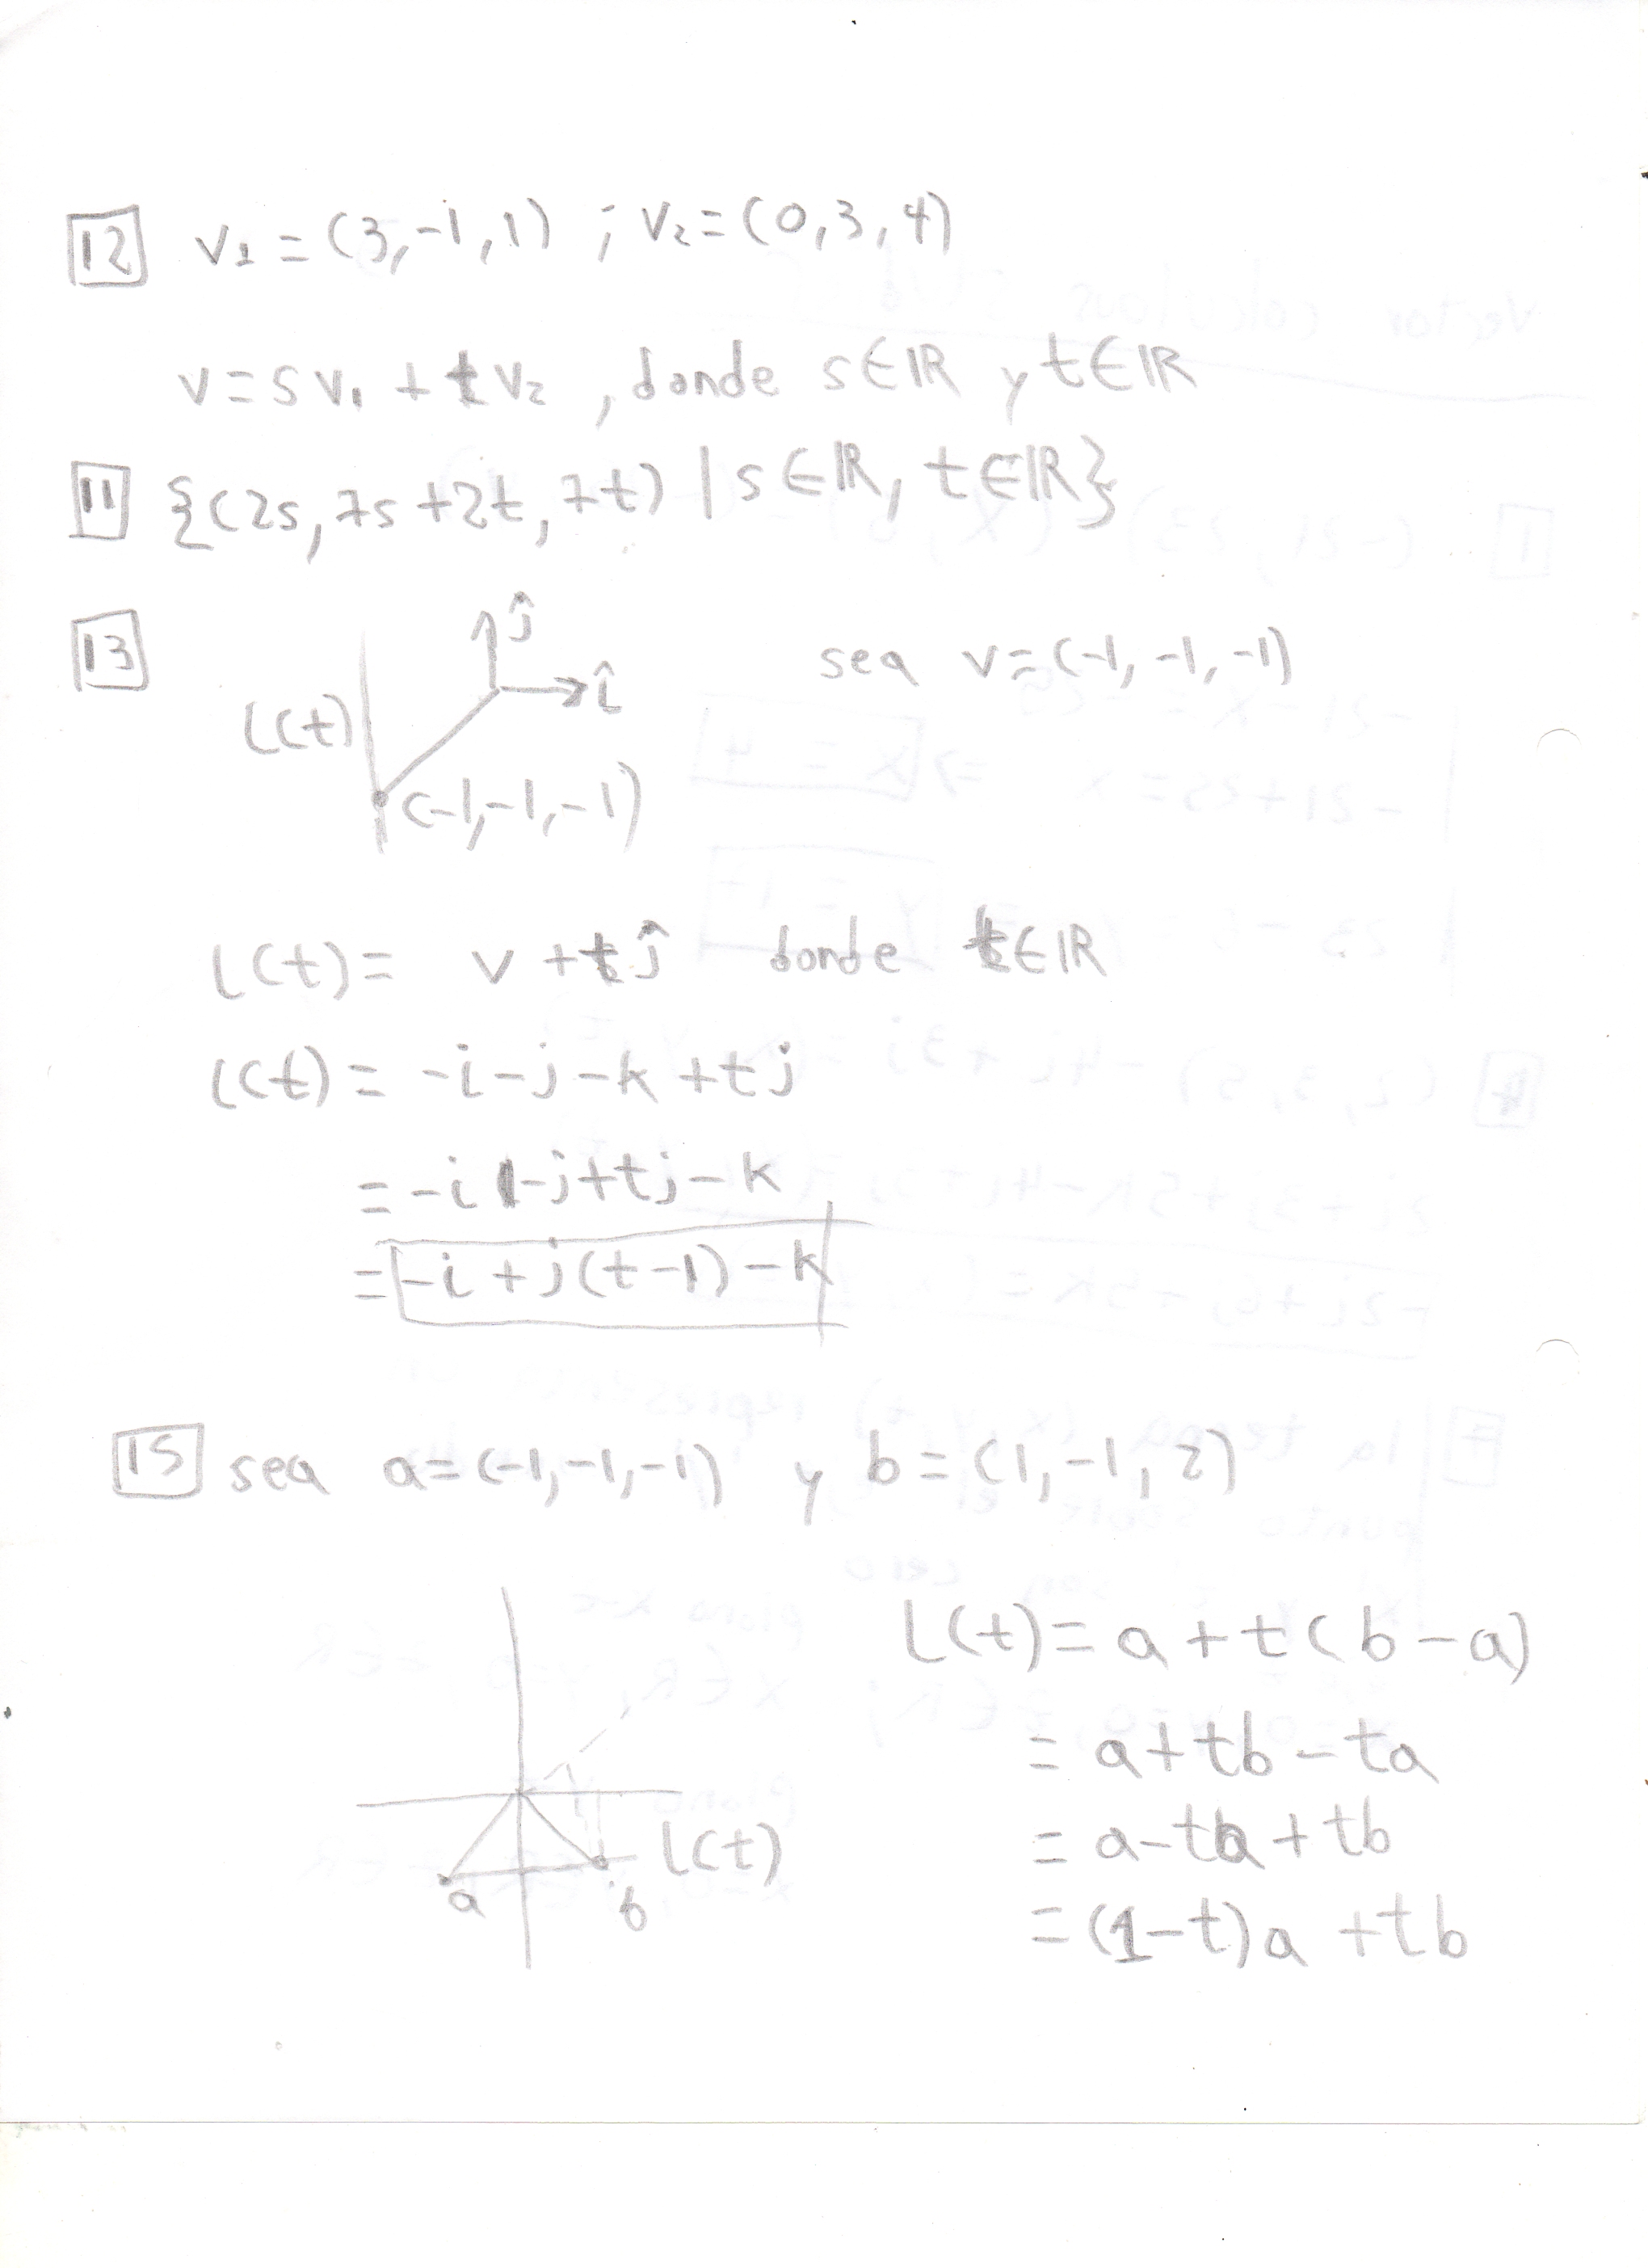 12 v₁ = (3, -1, 1) ; v₂ = (0, 3, 4)
v = s v₁ + t v₂ , donde s∈ℝ y t∈ℝ
11 {(2s, 7s+2t, 7t) | s∈ℝ, t∈ℝ}
13 ĵ
î
sea v = (-1, -1, -1)
l(t)
(-1, -1, -1)
l(t) = v + t ĵ donde t∈ℝ
l(t) = -i - j - k + t j
= -i - j + t j - k
= -i + j(t-1) - k
15 sea a = (-1, -1, -1) y b = (1, -1, 2)
l(t) = a + t(b - a)
= a + tb - ta
= a - ta + tb
= (1-t)a + tb
l(t)
a
b